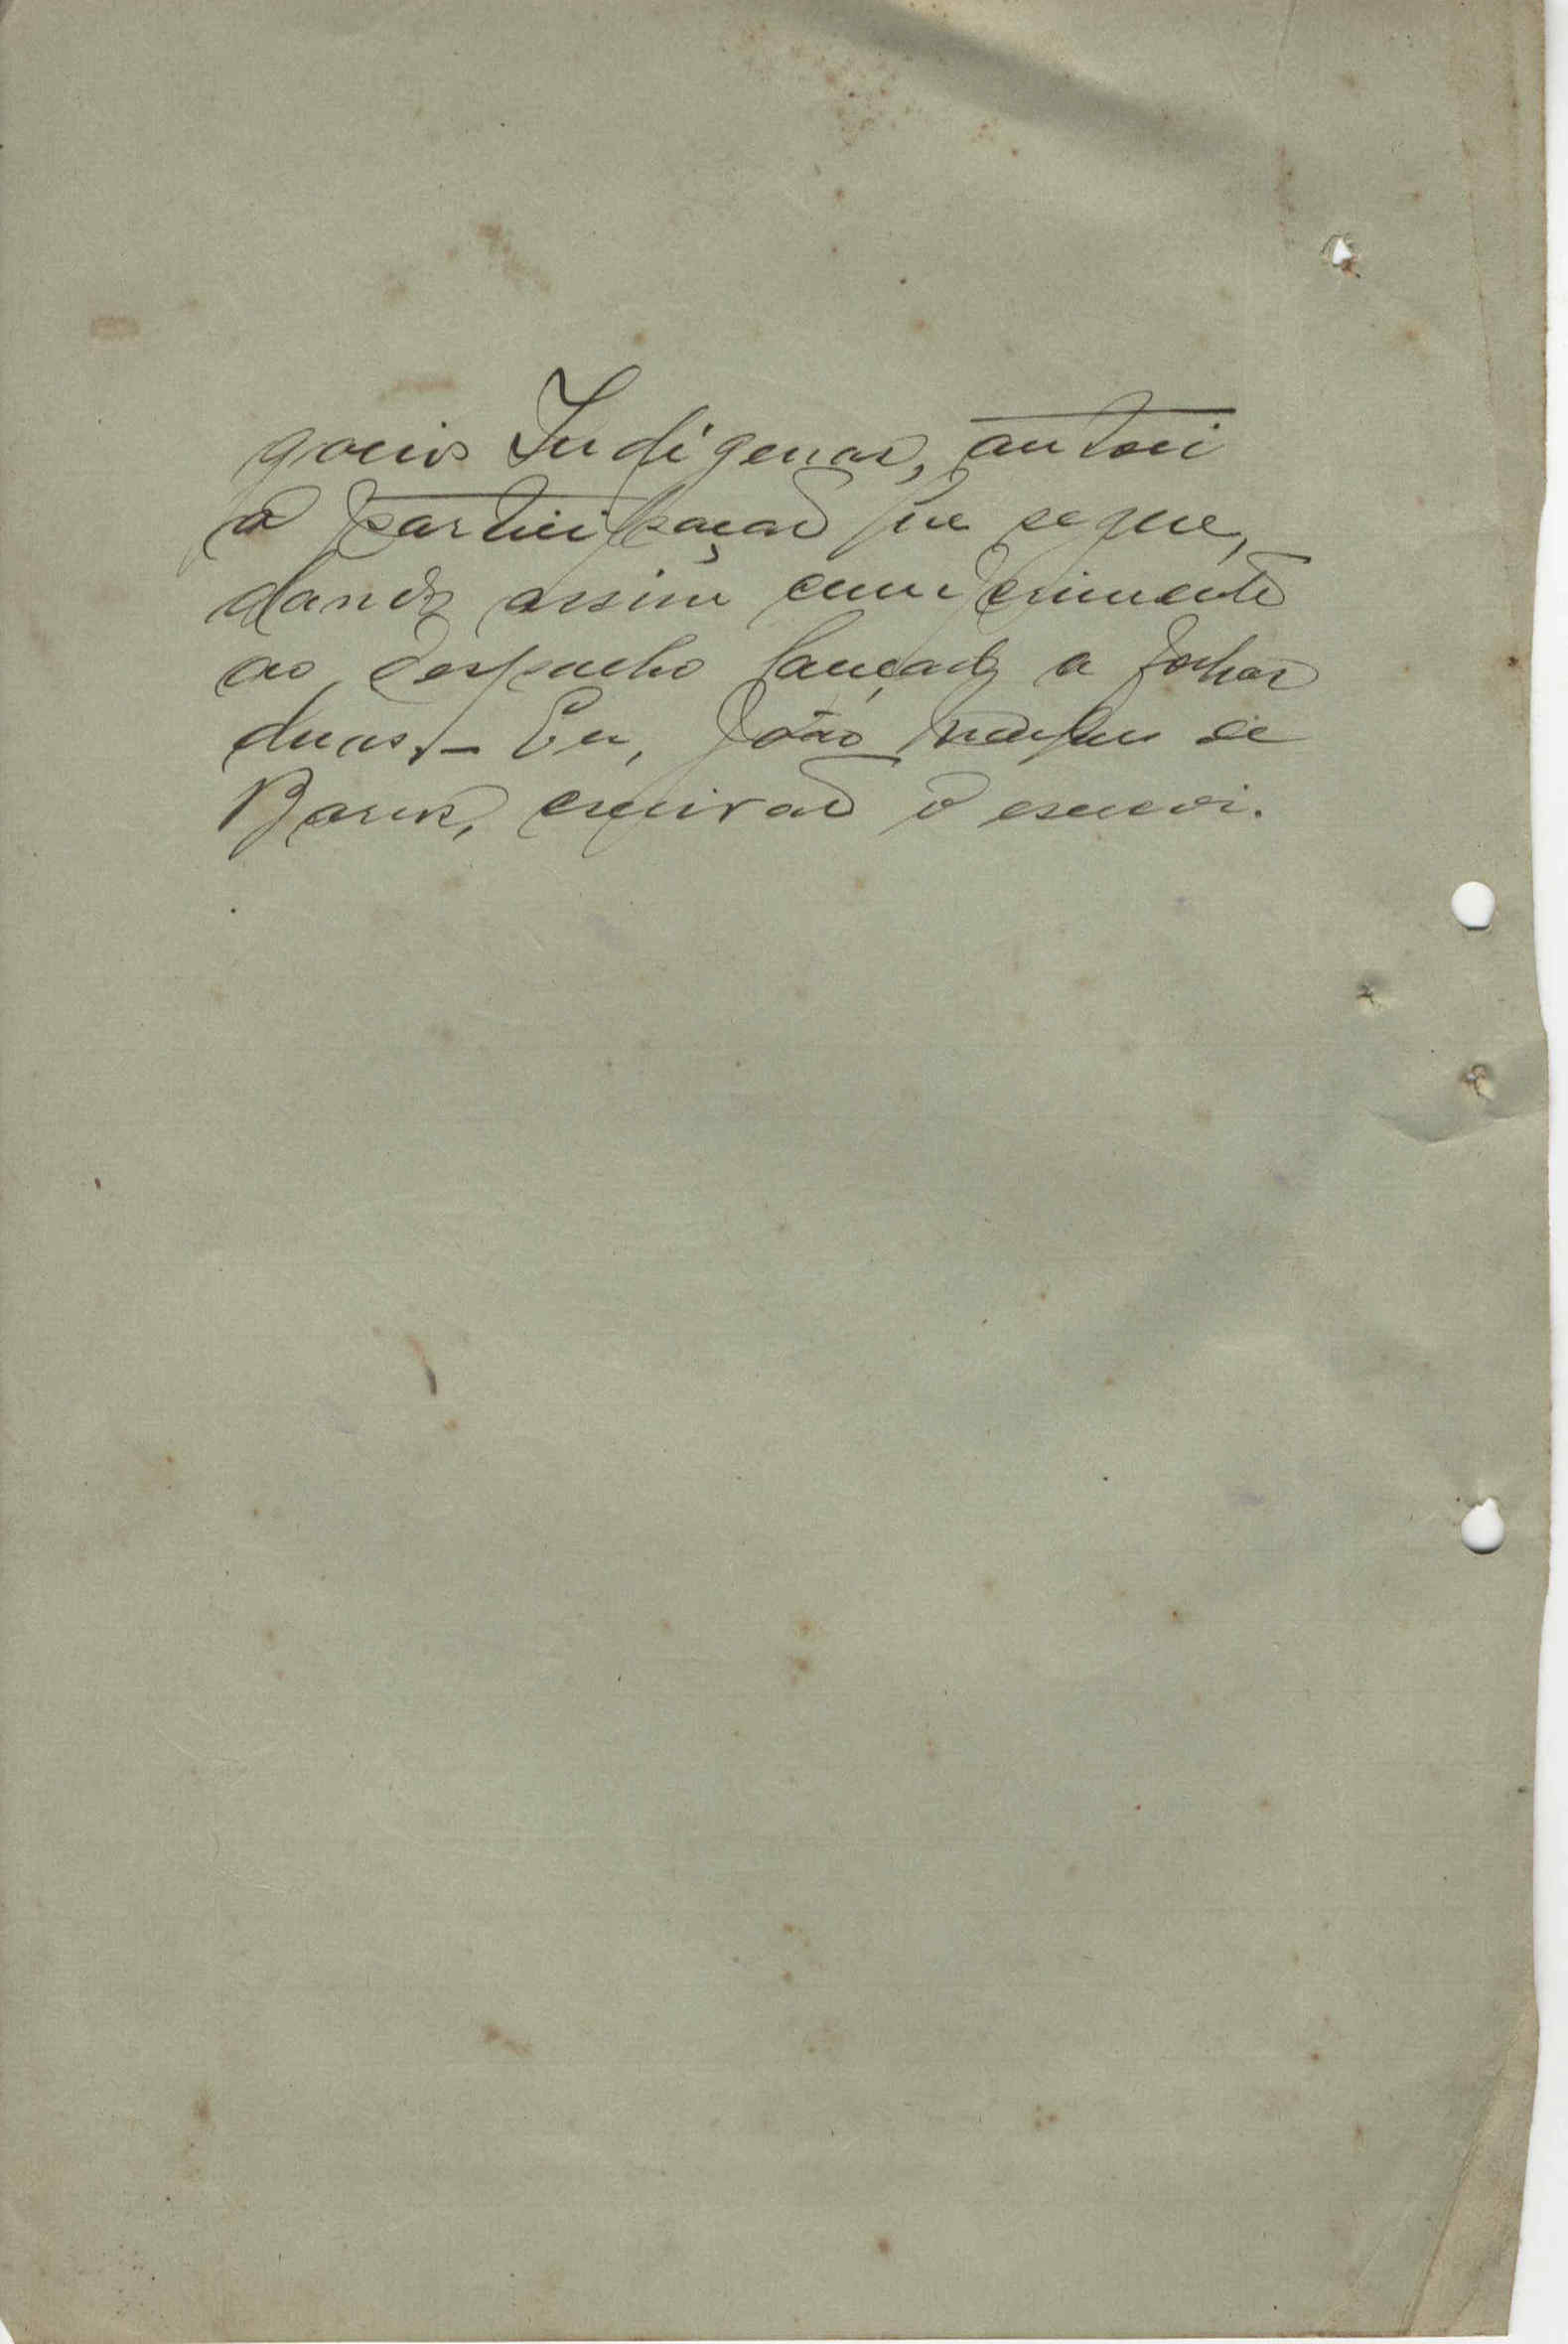 gocios Indigenas, autoei
a participação que segue,
dando assim cumprimento
ao despacho lançado a folhas
duas. — Eu, João de
Barros, escrivão o escrevi.